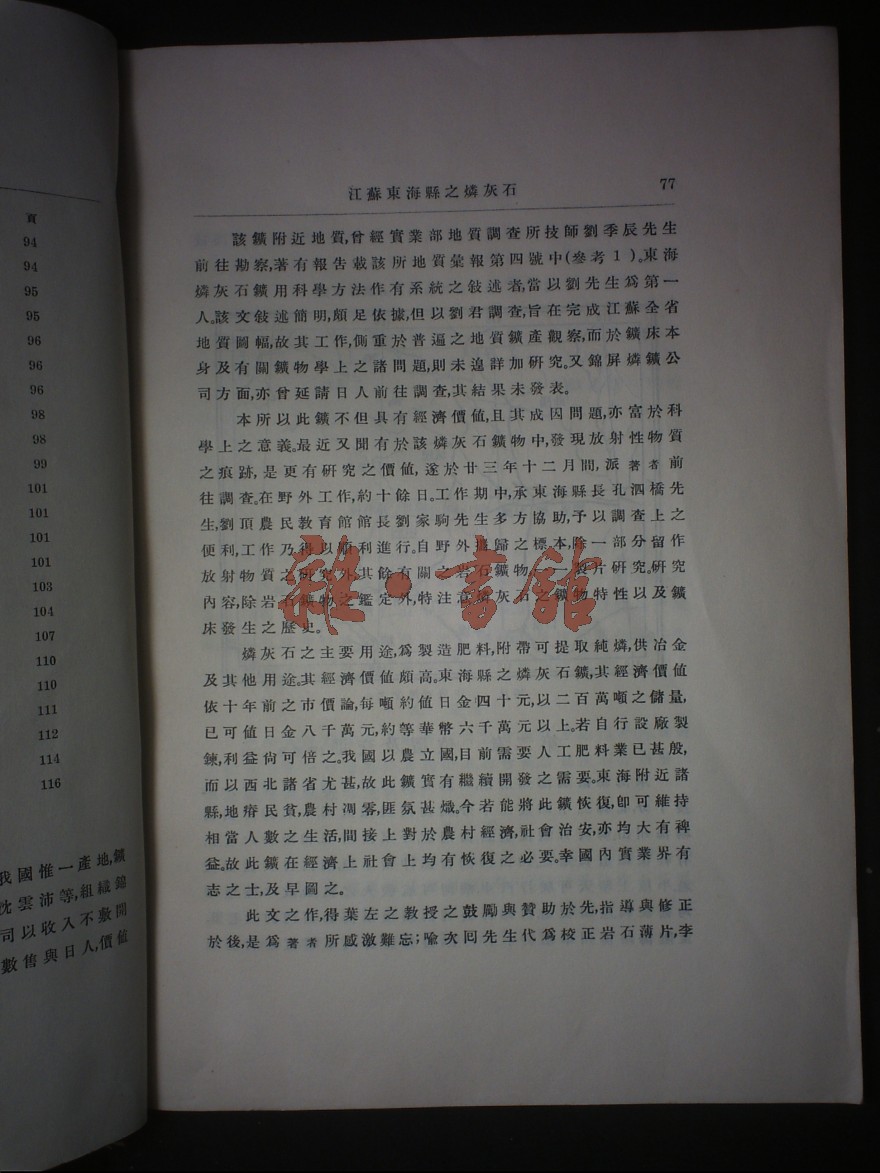 頁
94
94
95
95
96
96
96
98
98
99
101
101
101
101
103
104
107
110
110
111
112
114
116
我國惟一產地,鑛
沈雲沛等,組織錦
司以收入不敷開
數售與日人,價値
江蘇東海縣之燐灰石
77
該鑛附近地質,曾經實業部地質調查所技師劉季辰先生
前往勘察,著有報告載該所地質彙報第四號中(參考1)。東海
燐灰石鑛用科學方法作有系統之敍述者,當以劉先生爲第一
人。該文敍述簡明,頗足依據,但以劉君調查,旨在完成江蘇全省
地質圖幅,故其工作,側重於普遍之地質鑛產觀察,而於鑛床本
身及有關鑛物學上之諸問題,則未遑詳加研究。又錦屏燐鑛公
司方面,亦曾延請日人前往調查,其結果未發表。
本所以此鑛不但具有經濟價値,且其成因問題,亦富於科
學上之意義。最近又聞有於該燐灰石鑛物中,發現放射性物質
之痕跡,是更有研究之價値,遂於廿三年十二月間,派著者前
往調查。在野外工作,約十餘日。工作期中,承東海縣長孔泗橋先
生,劉頂農民教育館館長劉家駒先生多方協助,予以調查上之
便利,工作乃得以順利進行。自野外歸之標本,除一部分留作
放射物質之研究外,其餘有關之岩石鑛物,一一製片研究。研究
內容,除岩石鑛物之鑑定外,特注意燐灰石之鑛物特性以及鑛
床發生之歷史。
雜·書館
燐灰石之主要用途,爲製造肥料,附帶可提取純燐,供冶金
及其他用途。其經濟價値頗高。東海縣之燐灰石鑛,其經濟價値
依十年前之市價論,每噸約値日金四十元,以二百萬噸之儲量,
已可値日金八千萬元,約等華幣六千萬元以上。若自行設廠製
鍊,利益尙可倍之。我國以農立國,目前需要人工肥料業已甚殷,
而以西北諸省尤甚,故此鑛實有繼續開發之需要。東海附近諸
縣,地瘠民貧,農村凋零,匪氛甚熾。今若能將此鑛恢復,卽可維持
相當人數之生活,間接上對於農村經濟,社會治安,亦均大有裨
益。故此鑛在經濟上社會上均有恢復之必要。幸國內實業界有
志之士,及早圖之。
此文之作,得葉左之教授之鼓勵與贊助於先,指導與修正
於後,是爲著者所感激難忘;喩次囘先生代爲校正岩石薄片,李